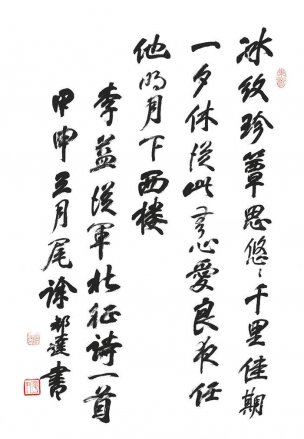 冰纹珍簟思悠悠千里佳期
一夕休从此无心爱良夜任
他明月下西楼
李益从军北征诗一首
甲申五月尾徐邦达书